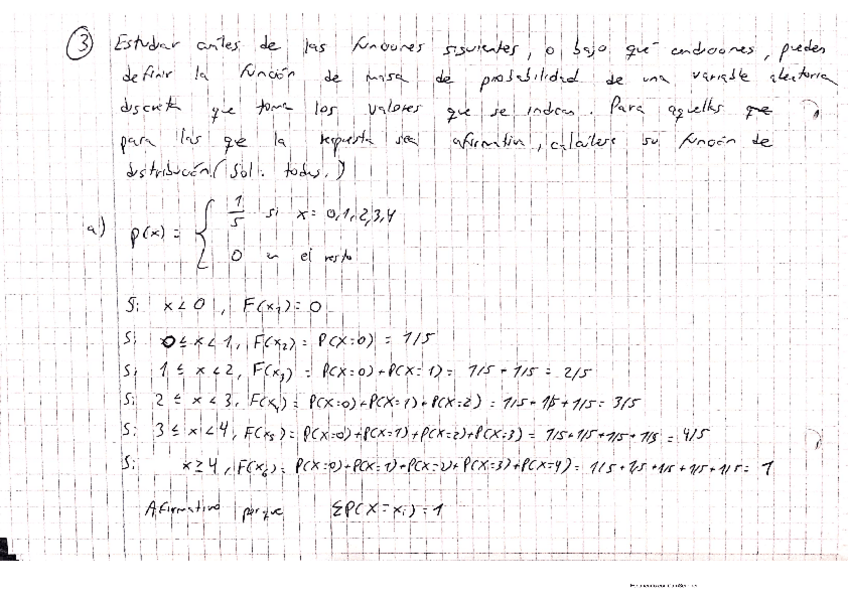 ③ Estudiar antes de las funciones siguientes, o bajo qué condiciones, pueden
definir la función de masa de probabilidad de una variable aleatoria
discreta que toma los valores que se indican. Para aquellas que
para las que la respuesta sea afirmativa, calcúlese su función de
distribución (Sol. todas.)
a) p(x) = { 1/5 si x = 0,1,2,3,4
0 en el resto
Si x < 0, F(x₁) = 0
Si 0 ≤ x < 1, F(x₂) = P(X=0) = 1/5
Si 1 ≤ x < 2, F(x₃) = P(X=0)+P(X=1) = 1/5 + 1/5 = 2/5
Si 2 ≤ x < 3, F(x₄) = P(X=0)+P(X=1)+P(X=2) = 1/5 + 1/5 + 1/5 = 3/5
Si 3 ≤ x < 4, F(x₅) = P(X=0)+P(X=1)+P(X=2)+P(X=3) = 1/5+1/5+1/5+1/5 = 4/5
Si x ≥ 4, F(x₆) = P(X=0)+P(X=1)+P(X=2)+P(X=3)+P(X=4) = 1/5+1/5+1/5+1/5+1/5 = 1
Afirmativo porque ΣP(X=xᵢ)=1